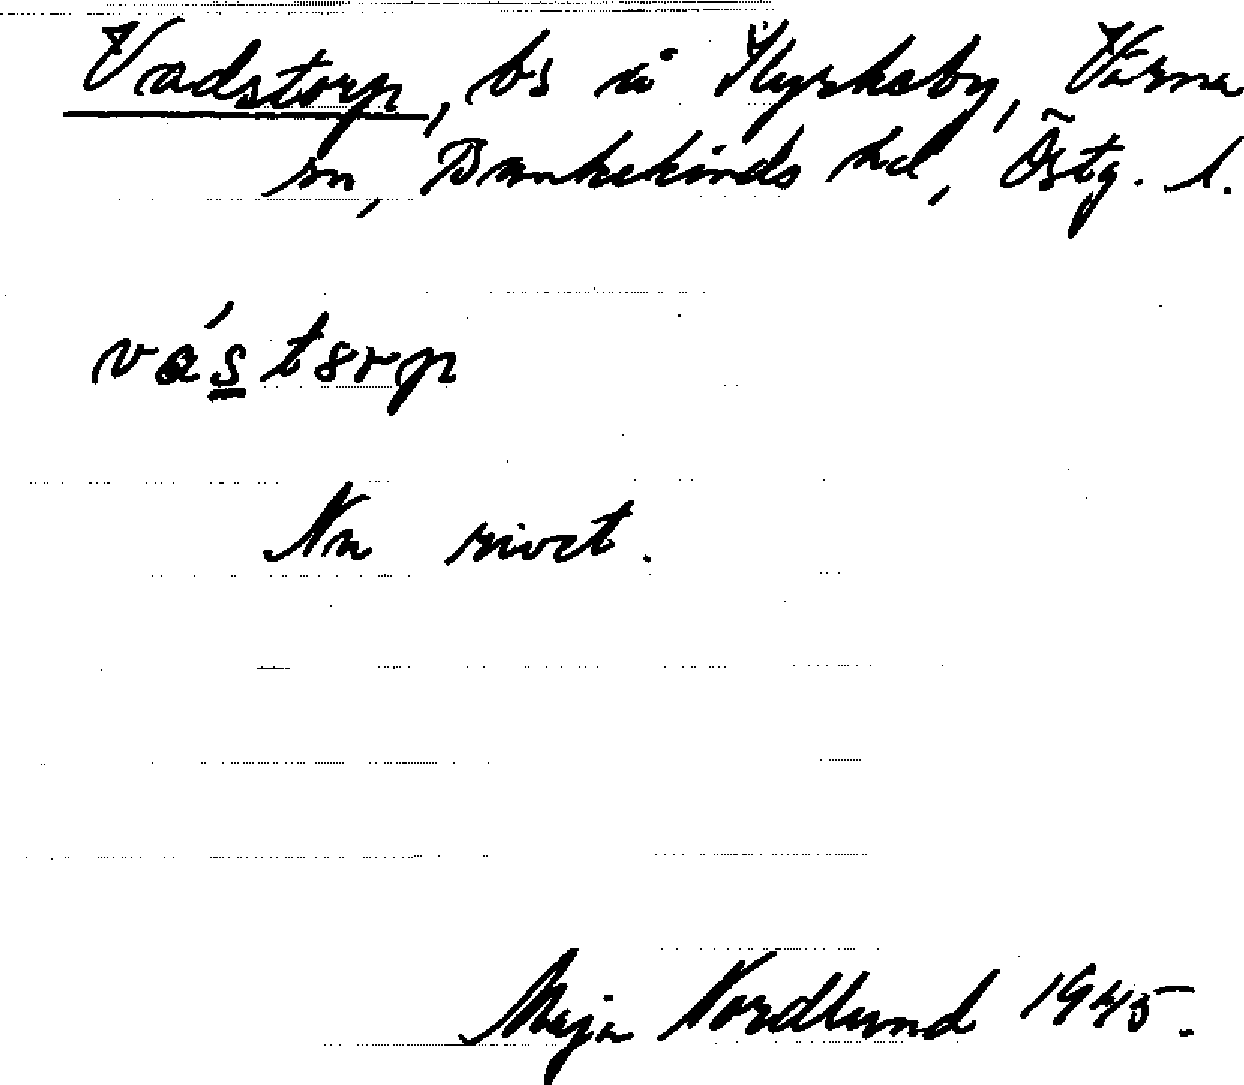 Vadstorp, bs å , Värna
sn, Bankekinds hd, Östg. l.
vás̲t8rp
Nu rivet.
Maja Nordlund 1945.